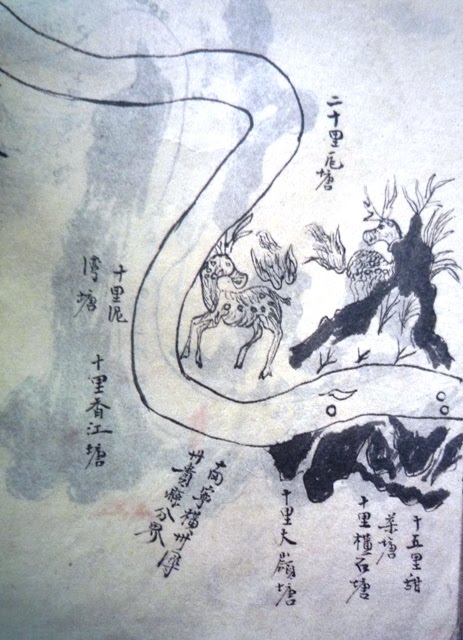 二十里瓦塘
十五里甜
菜塘
十里橫石塘
十里大嶺塘
南寧橫州潯
州貴縣分界
十里香江塘
十里泥
灣塘